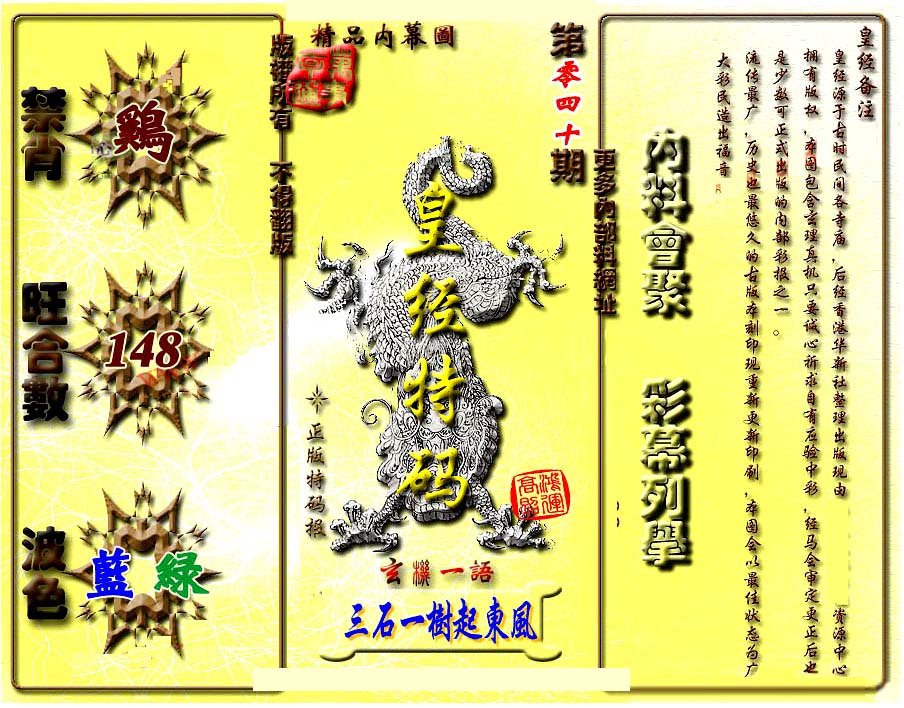 精品內幕圖
第零四十期
版權所有 不得翻版
更多內部料網址
禁肖
鷄
旺合數
148
波色
藍 綠
皇经特码
正版特码报
鴻運高照
玄機一語
三石一樹起東風
內料會聚
彩幕列舉
皇经备注
皇经源于古时民间各寺庙，后经香港华新社整理出版现由 资源中心
拥有版权，本图包含玄理真机只要诚心祈求自有应验中彩，经马会审定更正后也
是少数可正式出版的内部彩报之一。
流传最广，历史也最悠久的古版本刻印现重新更新印刷，本图会以最佳状态为广
大彩民造出福音